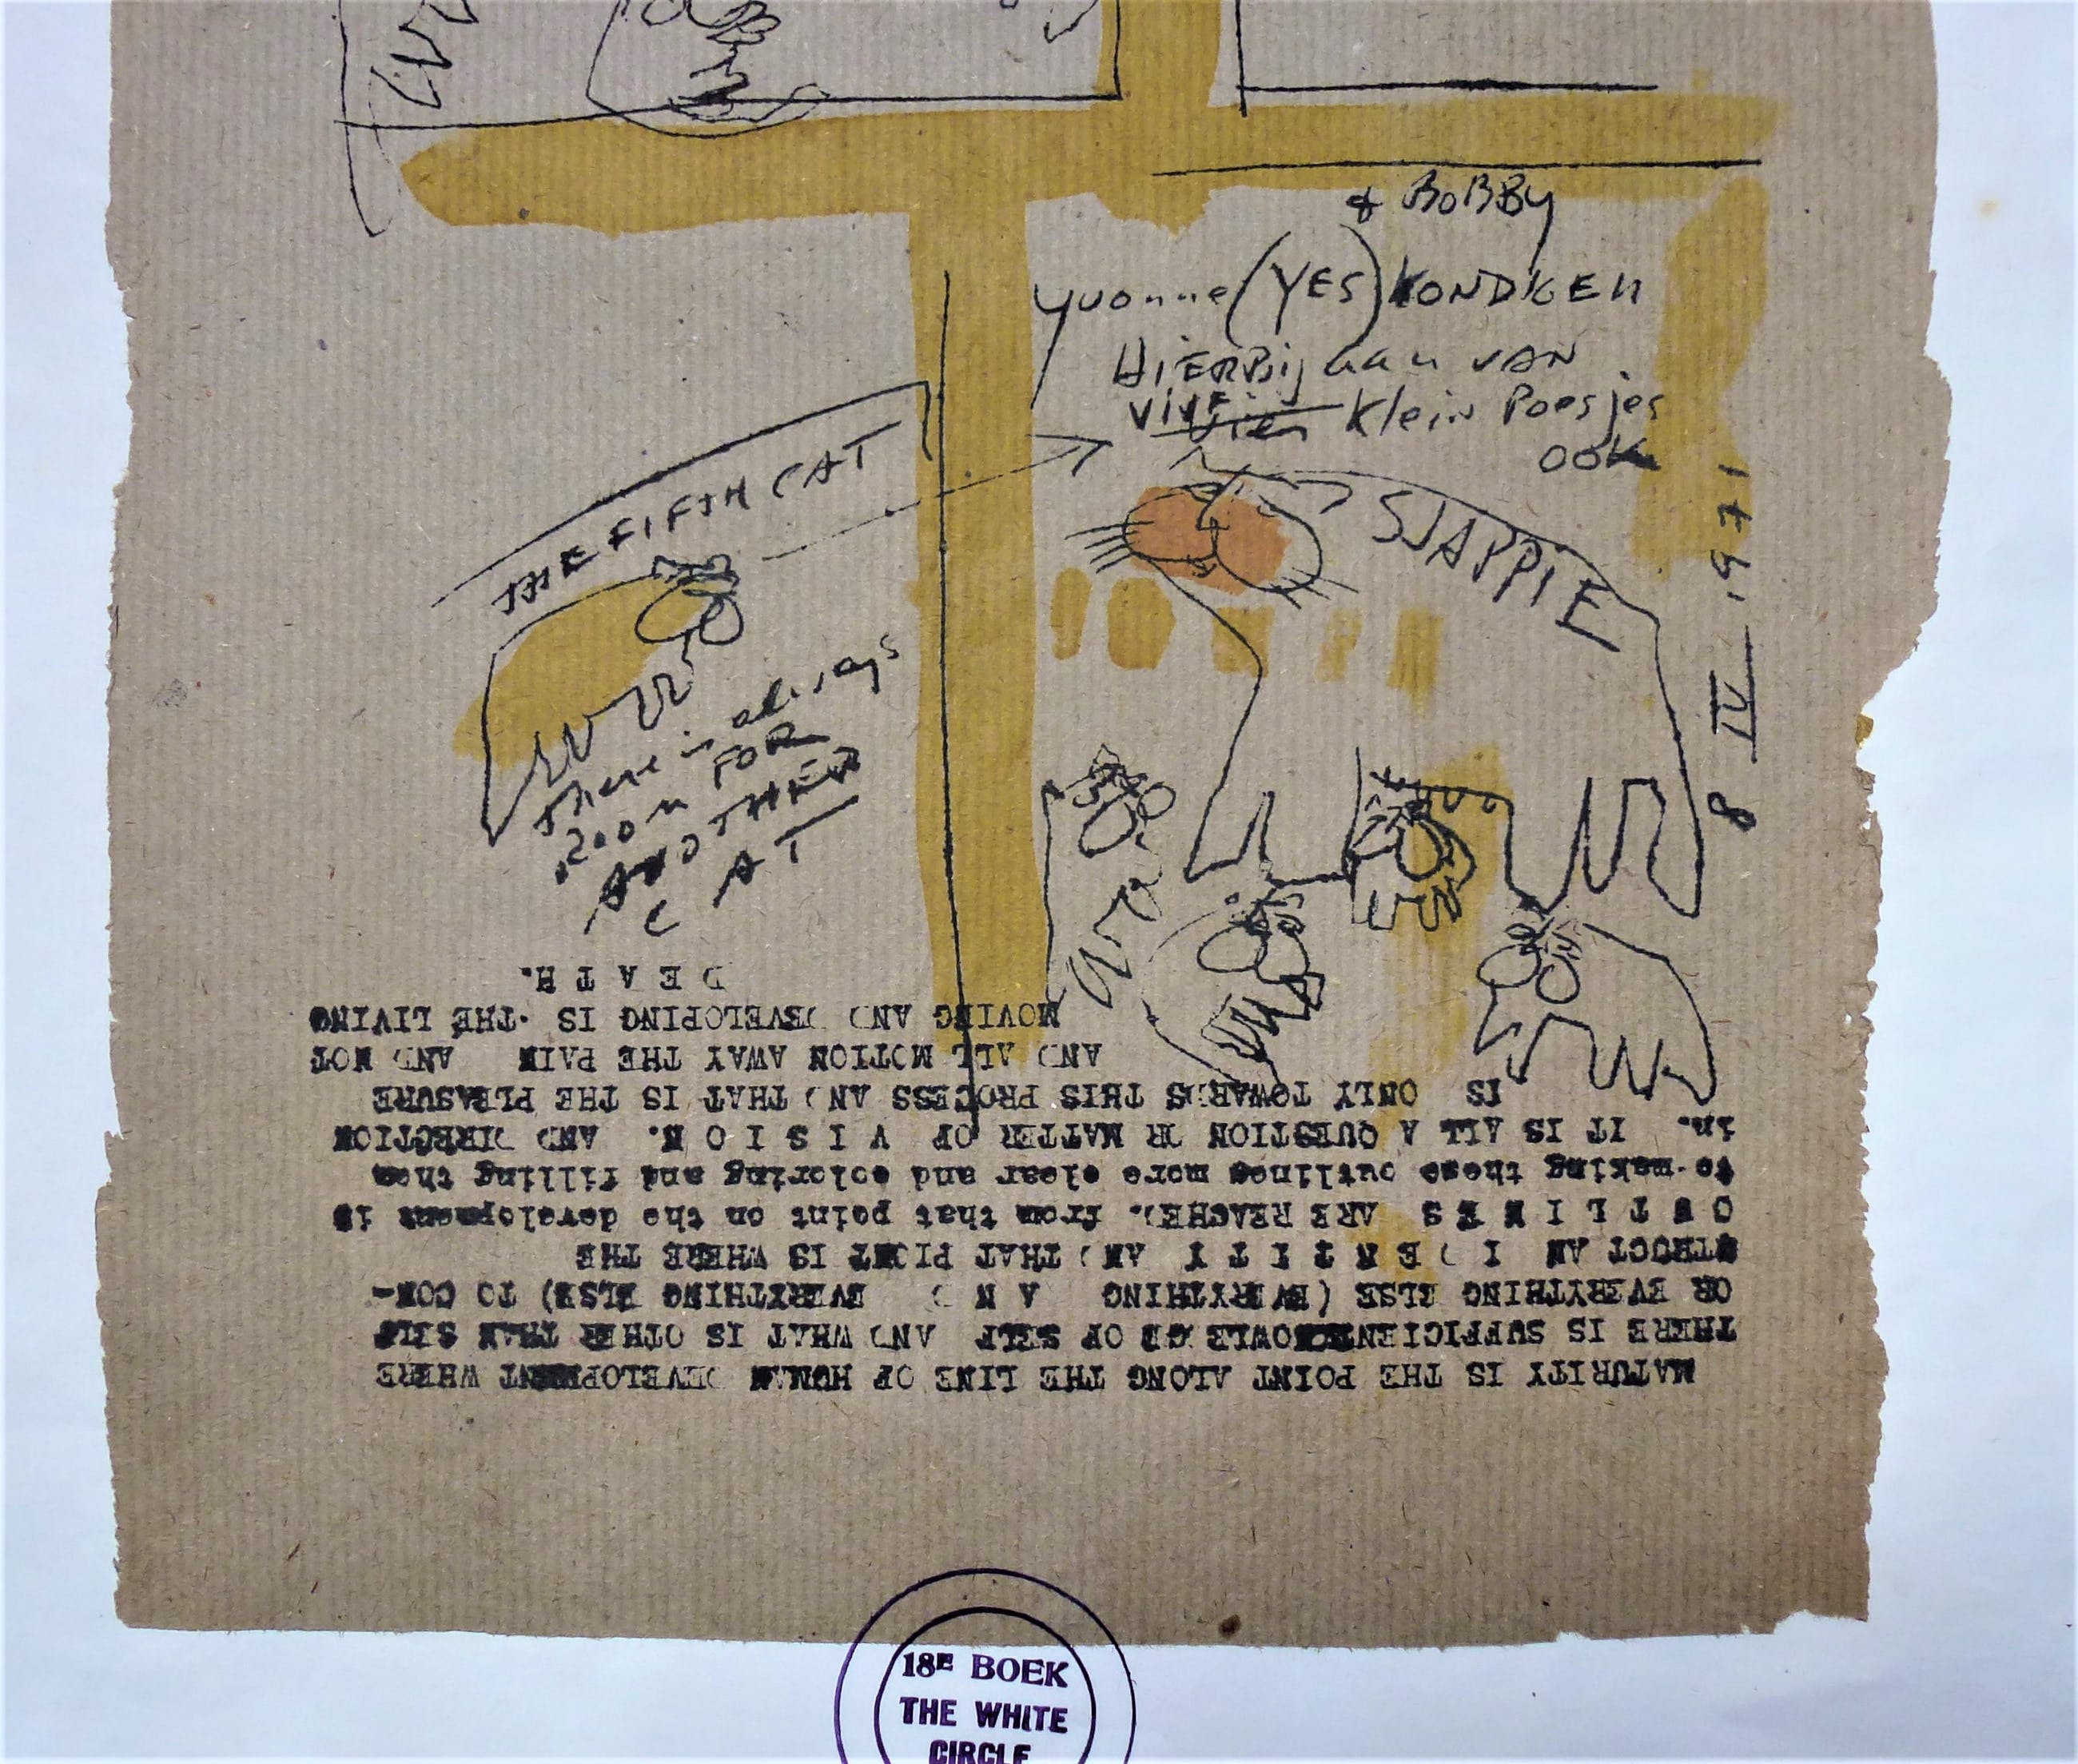 & BOBBY
Yvonne (YES) KONDIGEN
HIERBij aan VAN
VIVE vier Klein Poesjes
OOK
SJAPPIE
8 IV 1971
THE FIFTH CAT
There is always
room FOR
ANOTHER
CAT
MATURITY IS THE POINT ALONG THE LINE OF HUMAN DEVELOPMENT WHERE
THERE IS SUFFICIENT KNOWLEDGE OF SELF AND WHAT IS OTHER THAN SELF
OR EVERYTHING ELSE (EVERYTHING A N D EVERYTHING ELSE) TO CON-
STRUCT AN I D E N T I T Y AND THAT PIONT IS WHERE THE
O U T L I N E S ARE REACHED. from that point on the development is
to making these outlines more clear and coloring and filling them
in. IT IS ALL A QUESTION OR MATTER OF V I S I O N. AND DIRECTION
IS ONLY TOWARDS THIS PROCESS AND THAT IS THE PLEASURE
AND ALL MOTION AWAY THE PAIN AND NOT
MOVING AND DEVELOPING IS THE LIVING
D E A T H.
18E BOEK
THE WHITE
CIRCLE